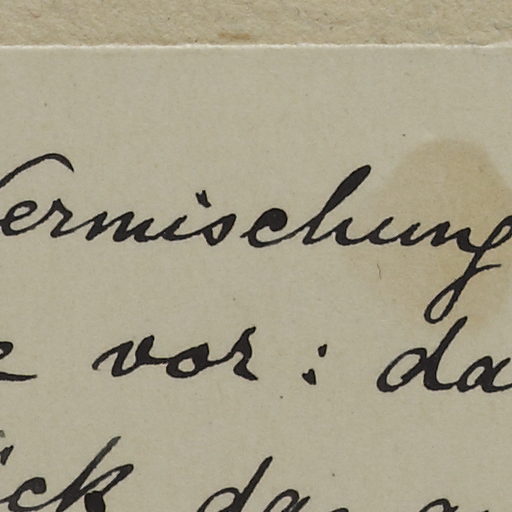 Vermischung
e vor : da
ück da